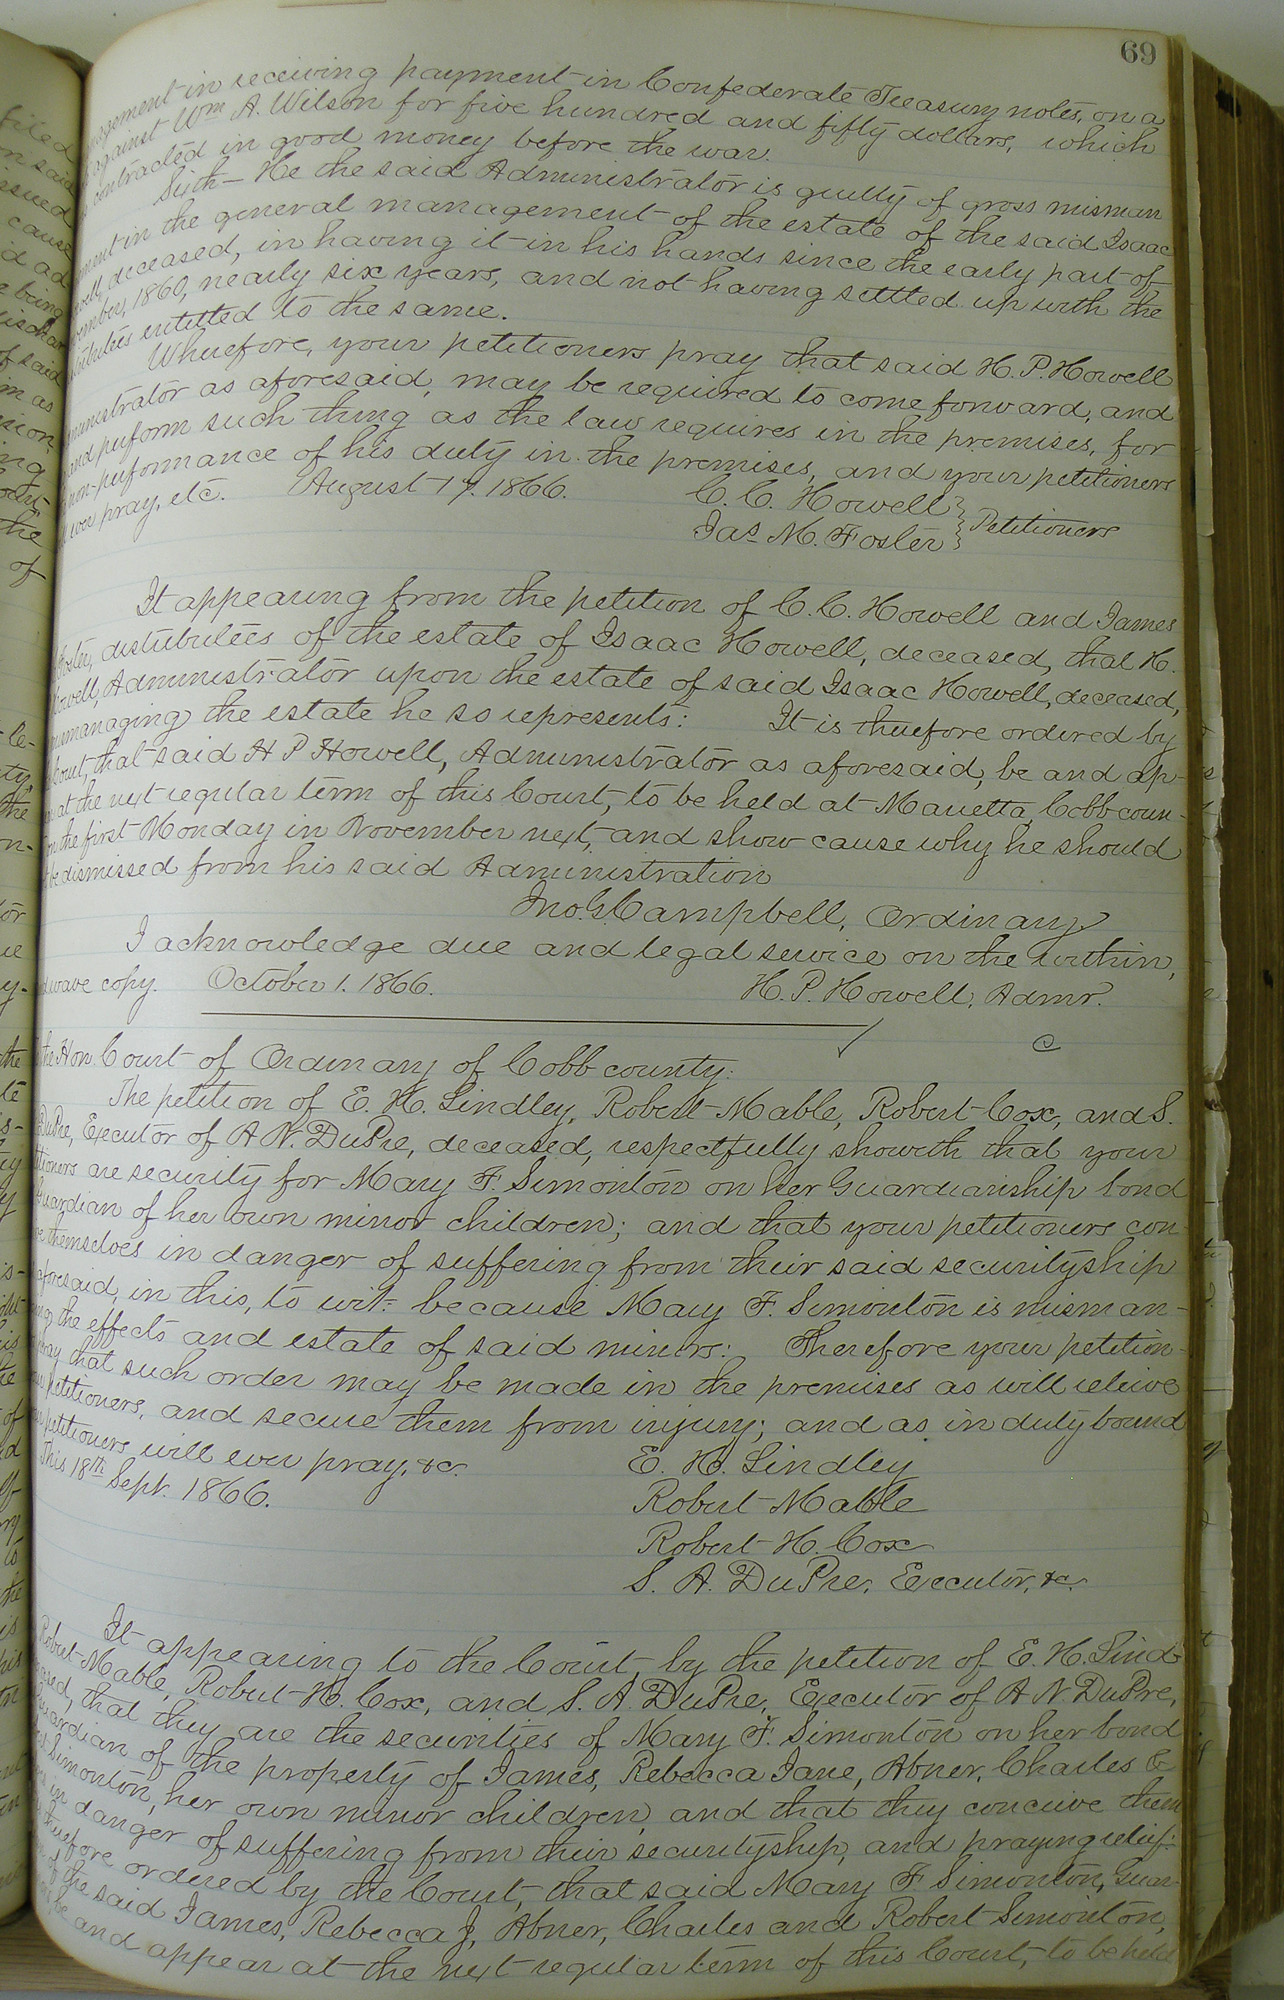 69
agement in receiving payment in Confederate Treasury notes, on a
against Wm A. Wilson for five hundred and fifty dollars, which
contracted in good money before the war.
Sixth - He the said Administrator is guilty of gross misman
ment in the general management of the estate of the said Isaac
well, deceased, in having it in his hands since the early part of
vember, 1860, nearly six years, and not having settled up with the
tributees entitled to the same.
Wherefore, your petitioners pray that said H. P. Howell
ministrator as aforesaid, may be required to come forward, and
and perform such thing as the law requires in the premises, for
non-performance of his duty in the premises, and your petitioners
ever pray, etc. August 17. 1866. C. C. Howell
Jas. M. Foster } Petitioners
It appearing from the petition of C. C. Howell and James
Foster, distributees of the estate of Isaac Howell, deceased, that H.
Howell, Administrator upon the estate of said Isaac Howell, deceased,
mismanaging the estate he so represents: It is therefore ordered by
Court, that said H P Howell, Administrator as aforesaid, be and ap-
at the next regular term of this Court, to be held at Marietta, Cobb coun-
on the first Monday in November next, and show cause why he should
be dismissed from his said Administration
Jno. G Campbell, Ordinary
I acknowledge due and legal service on the within,
wave copy. October 1. 1866. H. P. Howell, Admr.
c
the Hon. Court of Ordinary of Cobb county:
The petition of E. H. Lindley, Robert Mable, Robert Cox, and S.
DuPre, Executor of A N. DuPre, deceased, respectfully showeth that your
tioners are security for Mary F. Simonton on her Guardianship bond
Guardian of her own minor children; and that your petitioners con-
themselves in danger of suffering from their said securityship
aforesaid, in this, to wit: because Mary F. Simonton is misman-
ing the effects and estate of said minors: Therefore your petition-
pray that such order may be made in the premises as will relieve
petitioners, and secure them from injury; and as in duty bound
petitioners will ever pray, &c.
This 18th Sept. 1866.
E. H. Lindley
Robert Mable
Robert H. Cox
S. A. DuPre, Executor, &c.
It appearing to the Court, by the petition of E. H. Lind-
Robert Mable, Robert H. Cox, and S. A. DuPre, Executor of A N DuPre,
that they are the securities of Mary F. Simonton on her bond
Guardian of the property of James, Rebecca Jane, Abner, Charles &
Simonton, her own minor children, and that they conceive them
in danger of suffering from their securityship, and praying relief:
therefore ordered by the Court, that said Mary F Simonton, Guar-
of the said James, Rebecca J, Abner, Charles and Robert Simonton,
be and appear at the next regular term of this Court, to be held